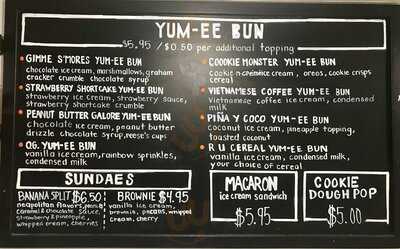 YUM-EE BUN
$5.95 / $0.50 per additional topping
GIMME S'MORES YUM-EE BUN
chocolate ice cream, marshmallows, graham
cracker crumble chocolate syrup
STRAWBERRY SHORTCAKE YUM-EE BUN
strawberry ice cream, strawberry sauce,
strawberry shortcake crumble
PEANUT BUTTER GALORE YUM-EE BUN
chocolate ice cream, peanut butter
drizzle chocolate syrup, reese's cups
O.G. YUM-EE BUN
vanilla ice cream, rainbow sprinkles,
condensed milk
COOOKIE MONSTER YUM-EE BUN
cookie n-creme ice cream, oreos, cookie crisps
cereal
VIETNAMESE COFFEE YUM-EE BUN
Vietnamese coffee ice cream, condensed
milk
PIÑA Y COCO YUM-EE BUN
coconut ice cream, pineapple topping,
toasted coconut
R U CEREAL YUM-EE BUN
vanilla ice cream, condensed milk,
your choice of cereal
SUNDAES
BANANA SPLIT $6.50
neapolitan flavors, peanuts
caramel & chocolate sauce,
strawberry & pineapple,
whipped cream, cherries
BROWNIE $4.95
vanilla ice cream,
brownie, pecans, whipped
cream, cherry
MACARON
ice cream sandwich
$5.95
COOKIE
DOUGH POP
$5.00